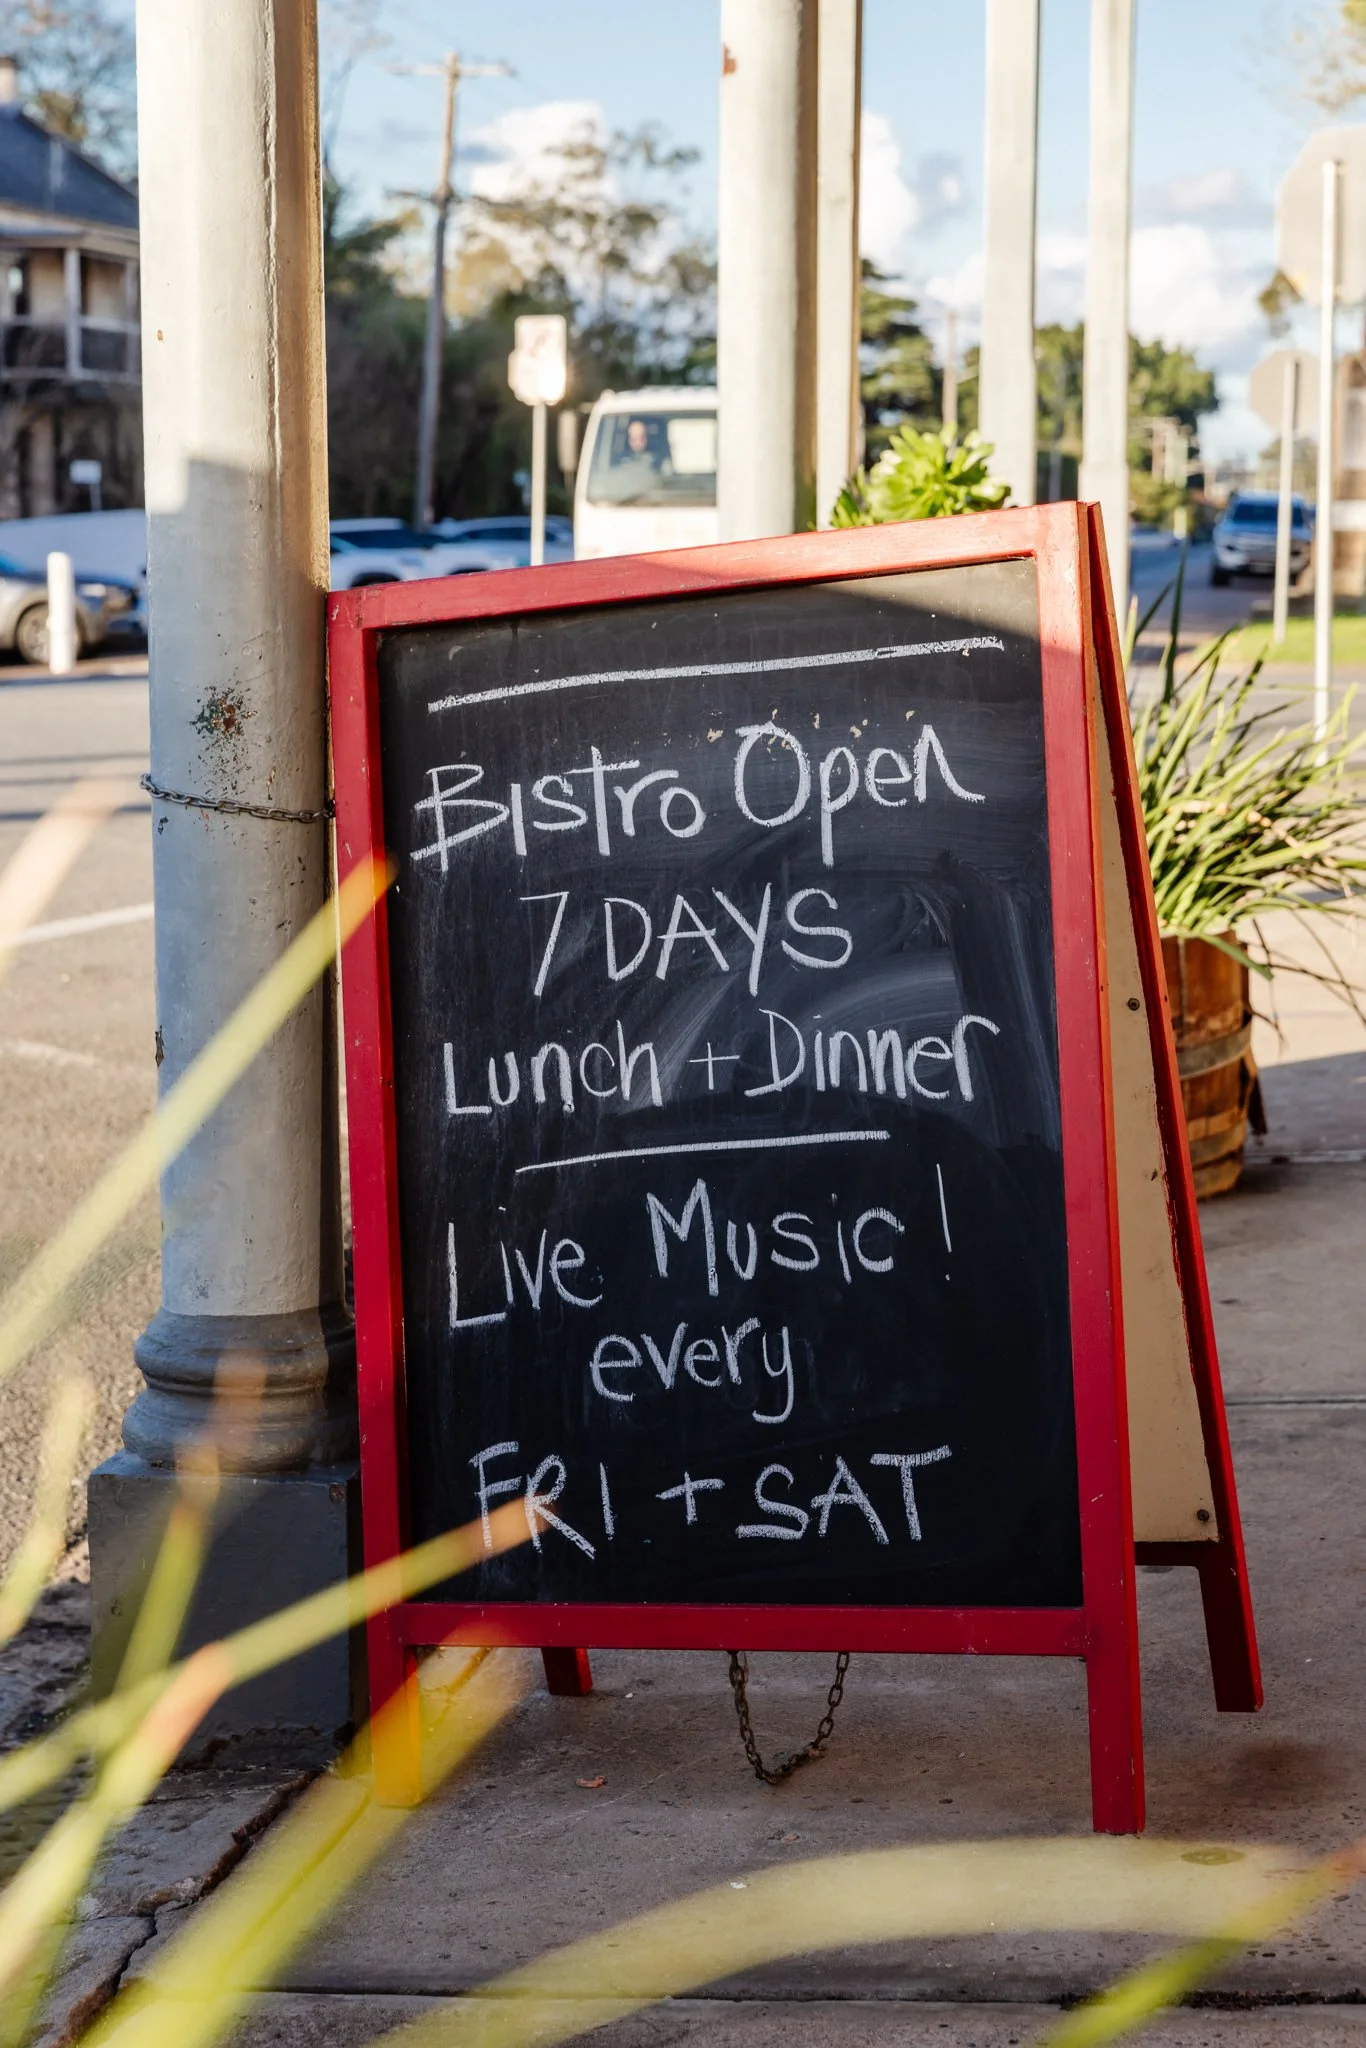 Bistro Open
7 DAYS
Lunch + Dinner
Live Music!
every
FRI + SAT